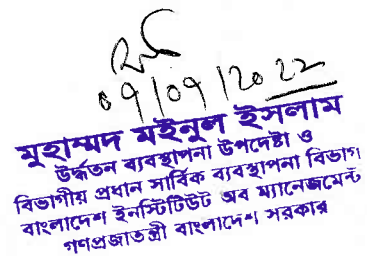 09/09/2022
মুহাম্মদ মইনুল ইসলাম
উর্দ্ধতন ব্যবস্থাপনা উপদেষ্টা ও
বিভাগীয় প্রধান সার্বিক ব্যবস্থাপনা বিভাগ
বাংলাদেশ ইনস্টিটিউট অব ম্যানেজমেন্ট
গণপ্রজাতন্ত্রী বাংলাদেশ সরকার